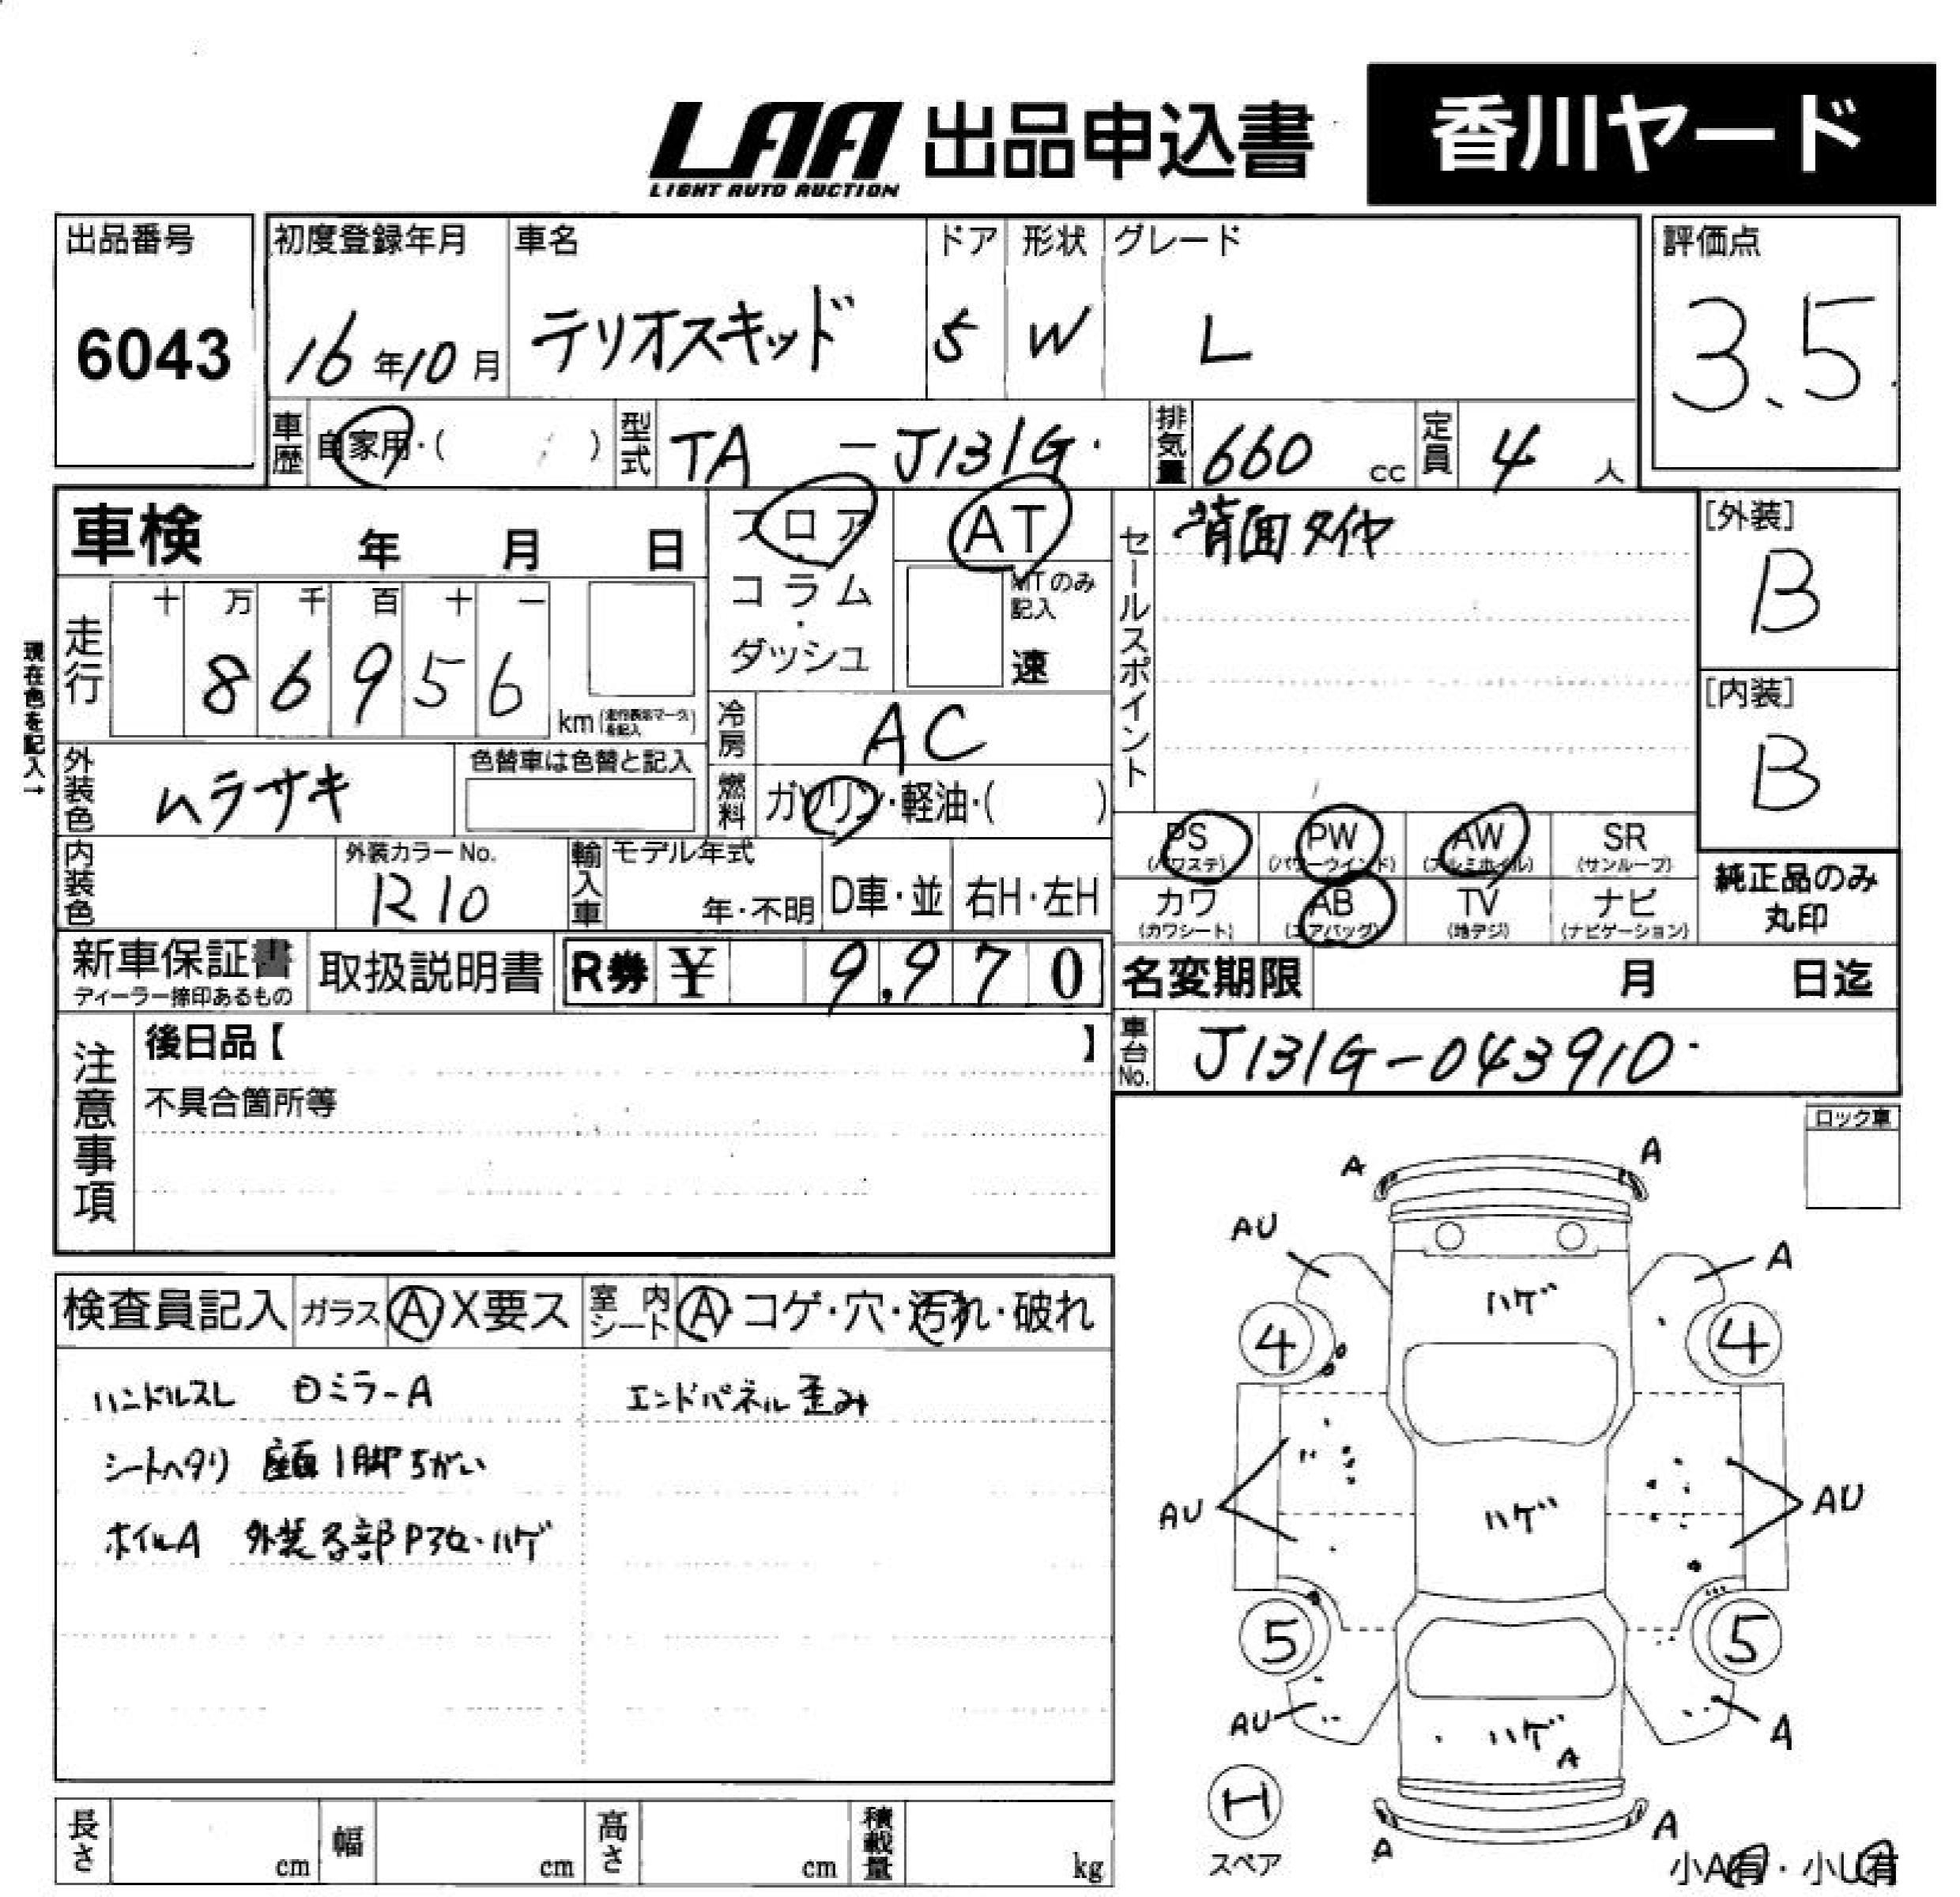 LAA 出品申込書 香川ヤード
LIGHT AUTO AUCTION
出品番号 初度登録年月 車名 ドア 形状 グレード 評価点
6043 16年10月 テリオスキッド 5 W L 3.5
車歴 自家用・( ) 型式 TA - J131G 排気量 660 cc 定員 4 人
車検 年 月 日 フロア・コラム・ダッシュ AT セールスポイント 背面タイヤ [外装] B
MTのみ記入 速
現在色を記入→
走行 十 万 千 百 十 一
8 6 9 5 6 km (走行表示マークを記入)
冷房 AC [内装] B
外装色 ムラサキ 色替車は色替と記入 燃料 ガソリン・軽油・( )
PS (パワステ) PW (パワーウインド) AW (アルミホイル) SR (サンルーフ)
内装色 外装カラーNo. R10 輸入車 モデル年式 年・不明 D車・並 右H・左H
カワ (カワシート) AB (エアバッグ) TV (地デジ) ナビ (ナビゲーション) 純正品のみ丸印
新車保証書 取扱説明書 R券 ¥ 9,970 名変期限 月 日迄
ディーラー締印あるもの
注意事項 後日品【 】 車台No. J131G-043910
不具合箇所等
ロック車
検査員記入 ガラス A X要ス 室内シート A・コゲ・穴・汚れ・破れ
ハンドルスレ ミラーA エンドパネル歪み
シートヘタリ 座面1脚ちがい
ホイルA 外装各部 ハゲ
A A
AU A
ハゲ
4 4
AU ハゲ AU
5 5
AU ハゲ A A
H
スペア
A A
小A有・小U有
長さ cm 幅 cm 高さ cm 積載量 kg